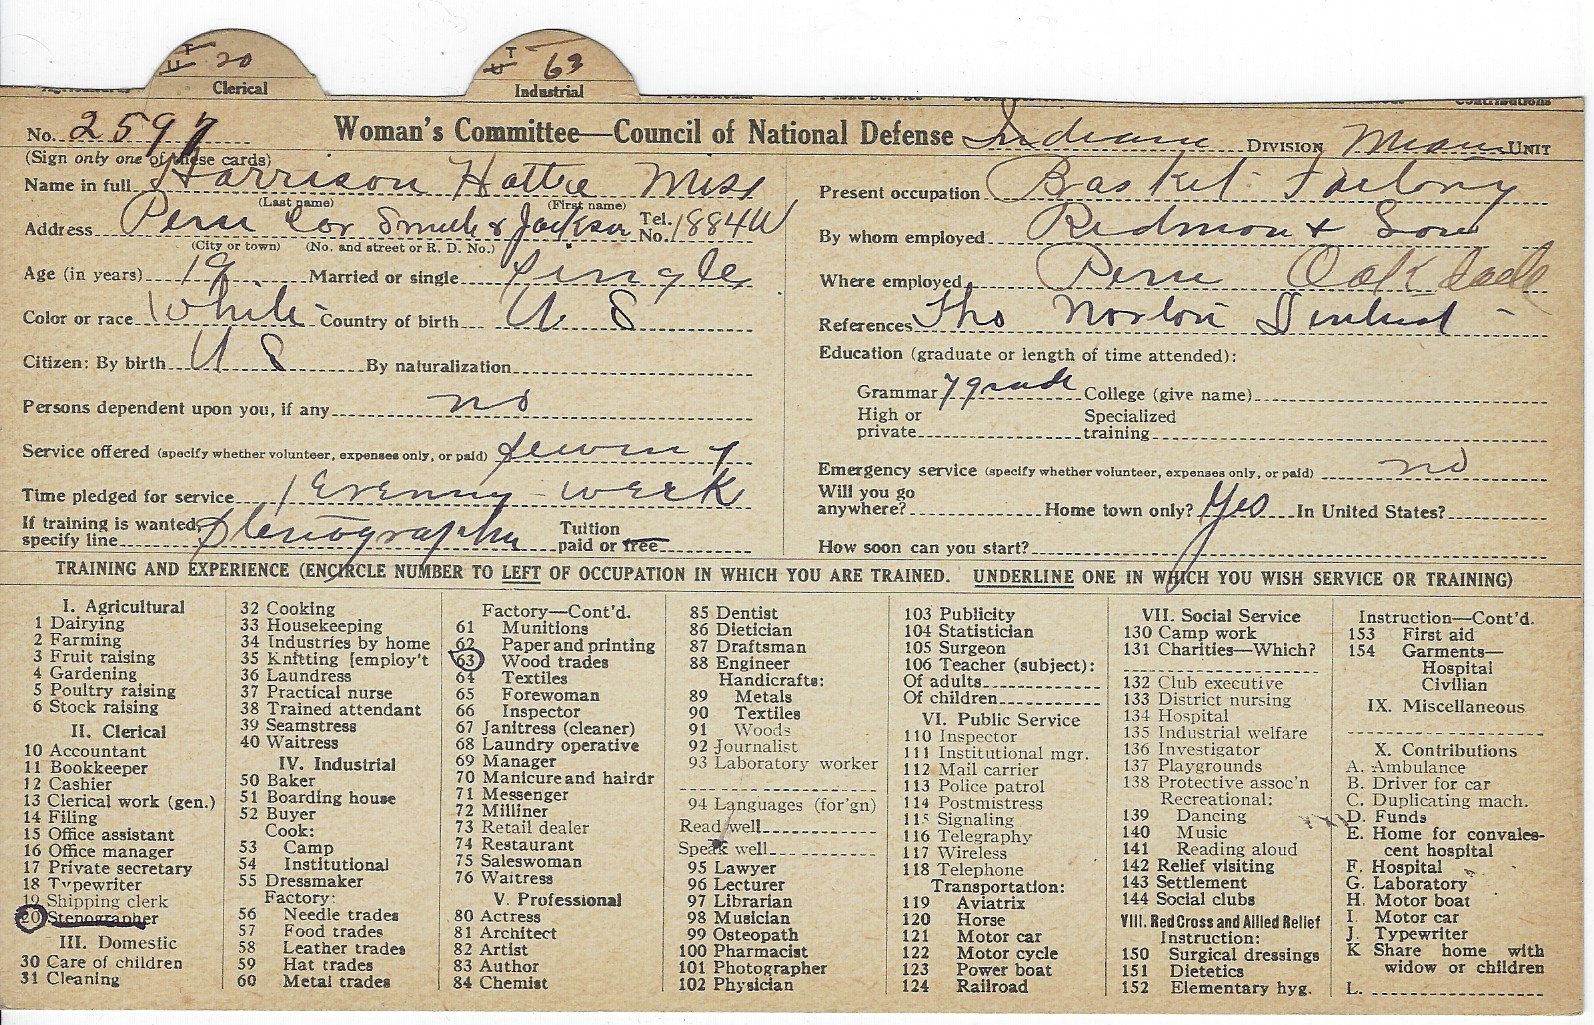 U T 20 U T 63
Clerical Industrial
No. 2597 Woman's Committee—Council of National Defense Indiana DIVISION Miami UNIT
(Sign only one of these cards)
Name in full Harrison Hattie Miss
(Last name) (First name)
Address Peru Cor Smith & Jackson Tel. No. 1884W
(City or town) (No. and street or R. D. No.)
Age (in years) 19 Married or single Single
Color or race White Country of birth U S
Citizen: By birth U S By naturalization
Persons dependent upon you, if any no
Service offered (specify whether volunteer, expenses only, or paid) Sewing
Time pledged for service 1 Evening week
If training is wanted, specify line Stenography Tuition paid or free
Present occupation Basket Factory
By whom employed Redmon & Sons
Where employed Peru Oakdale
References Tho Norton
Education (graduate or length of time attended):
Grammar 7 grade College (give name)
High or private Specialized training
Emergency service (specify whether volunteer, expenses only, or paid) no
Will you go anywhere? Home town only? Yes In United States?
How soon can you start?
TRAINING AND EXPERIENCE (ENCIRCLE NUMBER TO LEFT OF OCCUPATION IN WHICH YOU ARE TRAINED. UNDERLINE ONE IN WHICH YOU WISH SERVICE OR TRAINING)
I. Agricultural
1 Dairying
2 Farming
3 Fruit raising
4 Gardening
5 Poultry raising
6 Stock raising
II. Clerical
10 Accountant
11 Bookkeeper
12 Cashier
13 Clerical work (gen.)
14 Filing
15 Office assistant
16 Office manager
17 Private secretary
18 Typewriter
19 Shipping clerk
20 Stenographer
III. Domestic
30 Care of children
31 Cleaning
32 Cooking
33 Housekeeping
34 Industries by home
35 Knitting [employ't
36 Laundress
37 Practical nurse
38 Trained attendant
39 Seamstress
40 Waitress
IV. Industrial
50 Baker
51 Boarding house
52 Buyer
Cook:
53 Camp
54 Institutional
55 Dressmaker
Factory:
56 Needle trades
57 Food trades
58 Leather trades
59 Hat trades
60 Metal trades
Factory—Cont'd.
61 Munitions
62 Paper and printing
63 Wood trades
64 Textiles
65 Forewoman
66 Inspector
67 Janitress (cleaner)
68 Laundry operative
69 Manager
70 Manicure and hairdr
71 Messenger
72 Milliner
73 Retail dealer
74 Restaurant
75 Saleswoman
76 Waitress
V. Professional
80 Actress
81 Architect
82 Artist
83 Author
84 Chemist
85 Dentist
86 Dietician
87 Draftsman
88 Engineer
Handicrafts:
89 Metals
90 Textiles
91 Woods
92 Journalist
93 Laboratory worker
94 Languages (for'gn)
Read well
Speak well
95 Lawyer
96 Lecturer
97 Librarian
98 Musician
99 Osteopath
100 Pharmacist
101 Photographer
102 Physician
103 Publicity
104 Statistician
105 Surgeon
106 Teacher (subject):
Of adults
Of children
VI. Public Service
110 Inspector
111 Institutional mgr.
112 Mail carrier
113 Police patrol
114 Postmistress
115 Signaling
116 Telegraphy
117 Wireless
118 Telephone
Transportation:
119 Aviatrix
120 Horse
121 Motor car
122 Motor cycle
123 Power boat
124 Railroad
VII. Social Service
130 Camp work
131 Charities—Which?
132 Club executive
133 District nursing
134 Hospital
135 Industrial welfare
136 Investigator
137 Playgrounds
138 Protective assoc'n
Recreational:
139 Dancing
140 Music
141 Reading aloud
142 Relief visiting
143 Settlement
144 Social clubs
VIII. Red Cross and Allied Relief
Instruction:
150 Surgical dressings
151 Dietetics
152 Elementary hyg.
Instruction—Cont'd.
153 First aid
154 Garments—
Hospital
Civilian
IX. Miscellaneous
X. Contributions
A. Ambulance
B. Driver for car
C. Duplicating mach.
D. Funds
E. Home for convales-
cent hospital
F. Hospital
G. Laboratory
H. Motor boat
I. Motor car
J. Typewriter
K Share home with
widow or children
L.